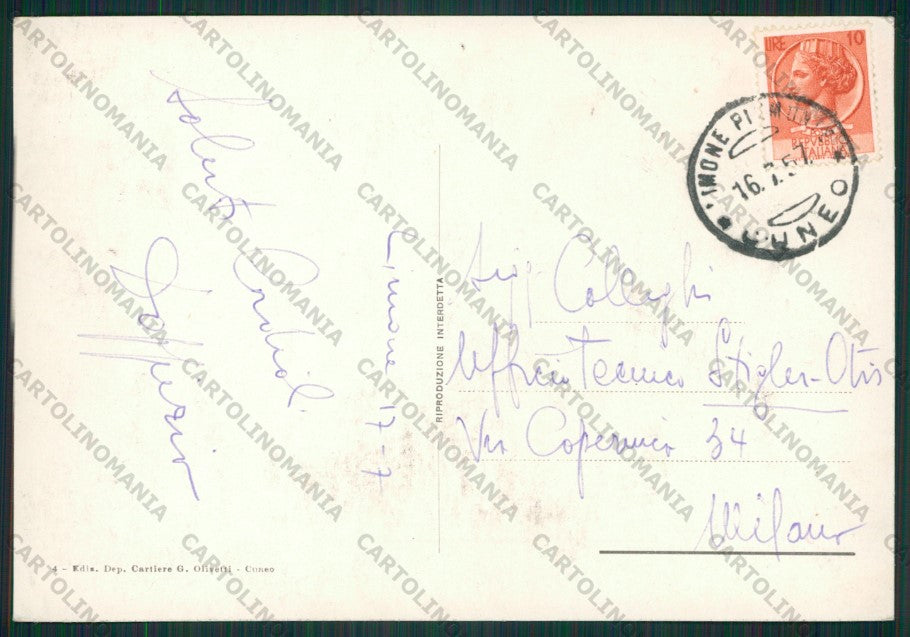 LIRE 10
REPVBBLICA
ITALIANA
LIMONE PIEMONTE
16.7.57
CUNEO
Saluti
Cordiali
Limone 17-7
RIPRODUZIONE INTERDETTA
Sigg Colleghi
Ufficio Tecnico Stigler-Otis
Via Copernico 34
Milano
4 - Ediz. Dep. Cartiere G. Olivetti - Cuneo
CARTOLINOMANIA